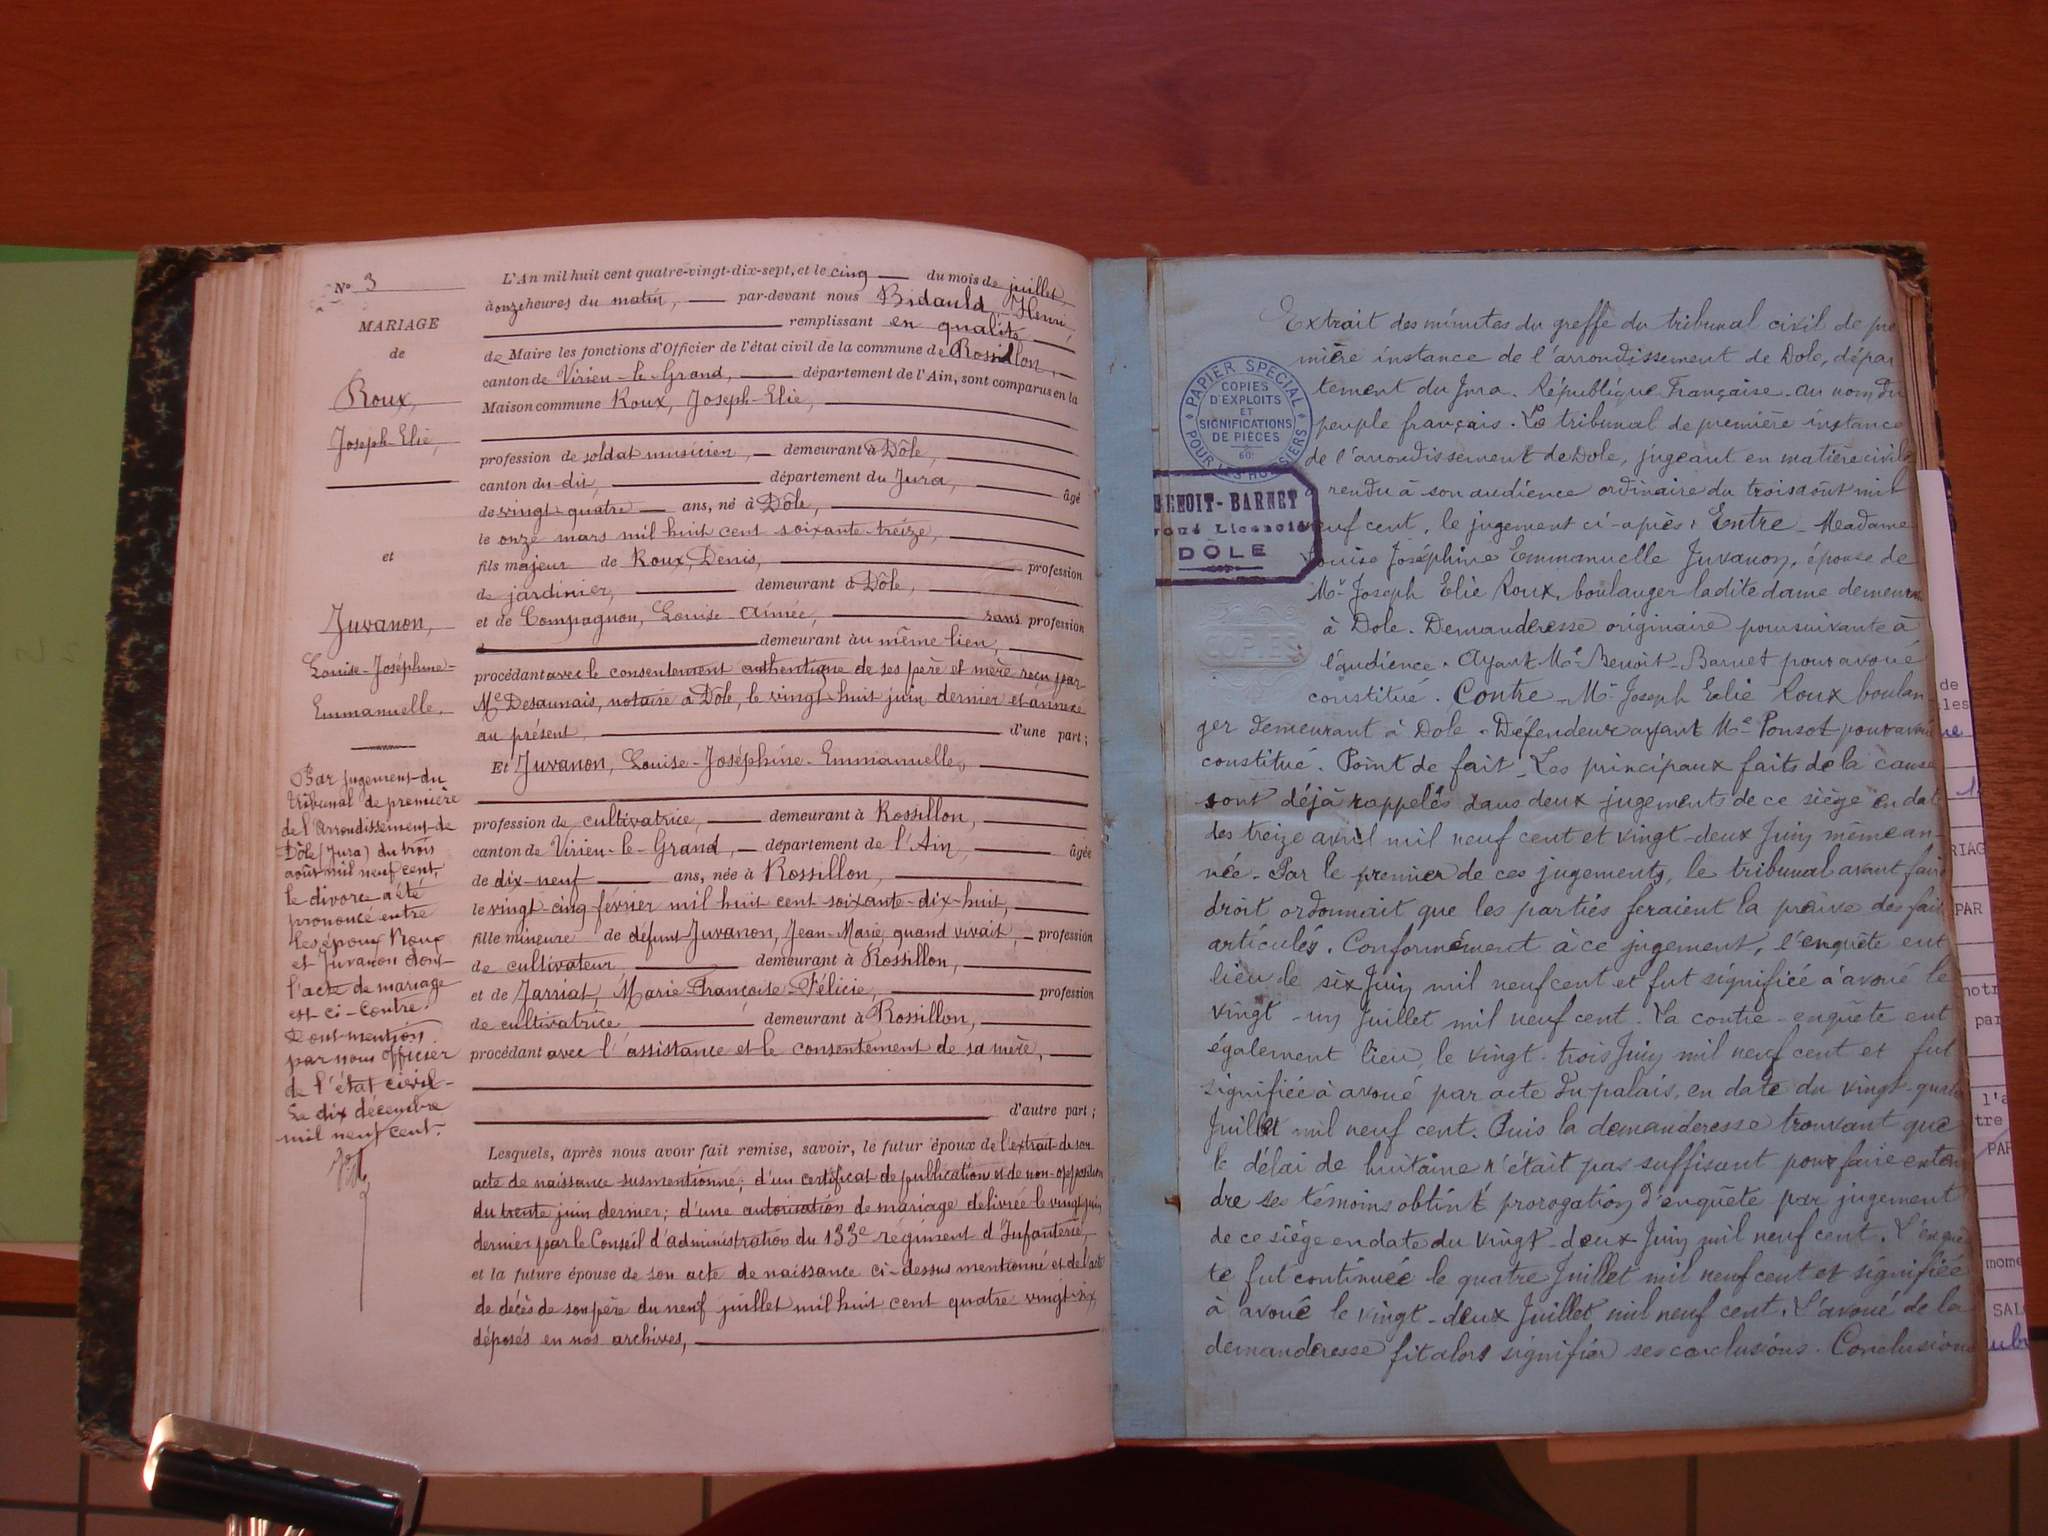 N° 3
MARIAGE
de
Roux,
Joseph-Elie,
et
Juvanon,
Louise-Joséphine-
Emmanuelle.
Par jugement du
tribunal de première
de l'arrondissement de
Dôle (Jura) du trois
août mil neuf cent,
le divorce a été
prononcé entre
les époux Roux
et Juvanon dont
l'acte de mariage
est ci-contre.
Dont mention
par nous officier
de l'état civil
Le dix décembre
mil neuf cent.
L'An mil huit cent quatre-vingt-dix-sept, et le cinq du mois de juillet
à onze heures du matin, par-devant nous Bidauld, Henri,
remplissant en qualité
de Maire les fonctions d'Officier de l'état civil de la commune de Rossillon,
canton de Virieu-le-Grand, département de l'Ain, sont comparus en la
Maison commune Roux, Joseph-Elie,
profession de soldat musicien, demeurant à Dôle,
canton du dit, département du Jura, âgé
de vingt-quatre ans, né à Dôle,
le onze mars mil huit cent soixante-treize,
fils majeur de Roux, Denis, profession
de jardinier, demeurant à Dôle,
et de Compagnon, Louise-Aimée, sans profession
demeurant au même lieu,
procédant avec le consentement authentique de ses père et mère reçu par
Me Desaunais, notaire à Dôle, le vingt-huit juin dernier et annexé
au présent d'une part;
Et Juvanon, Louise-Joséphine-Emmanuelle,
profession de cultivatrice, demeurant à Rossillon,
canton de Virieu-le-Grand, département de l'Ain, âgée
de dix-neuf ans, née à Rossillon,
le vingt-cinq février mil huit cent soixante-dix-huit,
fille mineure de défunt Juvanon, Jean-Marie, quand vivait, profession
de cultivateur demeurant à Rossillon,
et de Jarriat, Marie-Françoise-Félicie, profession
de cultivatrice demeurant à Rossillon,
procédant avec l'assistance et le consentement de sa mère,
d'autre part;
Lesquels, après nous avoir fait remise, savoir, le futur époux de l'extrait de son
acte de naissance susmentionné; d'un certificat de publication et de non-opposition
du trente juin dernier; d'une autorisation de mariage délivrée le vingt juin
dernier par le Conseil d'administration du 133e régiment d'Infanterie,
et la future épouse de son acte de naissance ci-dessus mentionné et de l'acte
de décès de son père du neuf juillet mil huit cent quatre vingt-six,
déposés en nos archives,
PAPIER SPECIAL
POUR LES HUISSIERS
COPIES
D'EXPLOITS
ET
SIGNIFICATIONS
DE PIÈCES
60c
BENOIT-BARNET
Avoué Licencié
DÔLE
COPIES
Extrait des minutes du greffe du tribunal civil de pre
mière instance de l'arrondissement de Dole, dépar
tement du Jura. République Française. Au nom du
peuple français. Le tribunal de première instance
de l'arrondissement de Dole, jugeant en matière civile
a rendu à son audience ordinaire du trois août mil
neuf cent, le jugement ci-après: Entre Madame
Louise Joséphine Emmanuelle Juvanon, épouse de
Mr Joseph Elie Roux, boulanger ladite dame demeurant
à Dole. Demanderesse originaire poursuivante à
l'audience. Ayant Me Benoit-Barnet pour avoué
constitué. Contre Mr Joseph Elie Roux boulan
ger demeurant à Dole. Défendeur ayant Me Ponsot pour avoué
constitué. Point de fait. Les principaux faits de la cause
sont déjà rappelés dans deux jugements de ce siège en dat
des treize avril mil neuf cent et vingt-deux Juin même an-
née. Par le premier de ces jugements, le tribunal avant faire
droit ordonnait que les parties feraient la preuve des fait
articulés. Conformément à ce jugement, l'enquête eut
lieu le six Juin mil neuf cent et fut signifiée à avoué le
vingt-un Juillet mil neuf cent. La contre-enquête eut
également lieu le vingt-trois Juin mil neuf cent et fut
signifiée à avoué par acte du palais, en date du vingt-quatre
Juillet mil neuf cent. Puis la demanderesse trouvant que
le délai de huitaine n'était pas suffisant pour faire enten
dre ses témoins obtint prorogation d'enquête par jugement
de ce siège en date du vingt-deux Juin mil neuf cent. L'enquê
te fut continuée le quatre Juillet mil neuf cent et signifiée
à avoué le vingt-deux Juillet mil neuf cent. L'avoué de la
demanderesse fit alors signifier ses conclusions. Conclusions